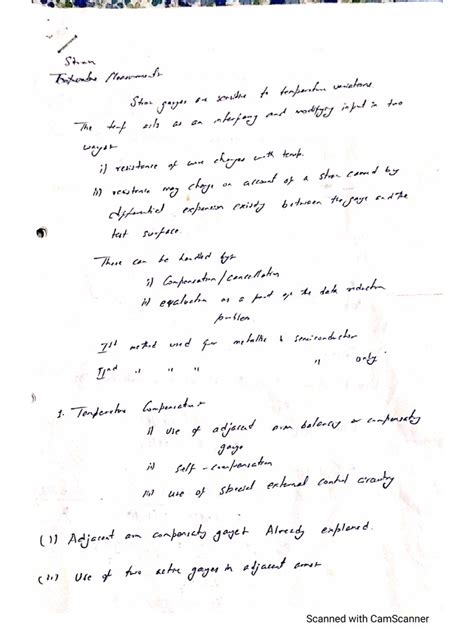 Strain
Temperature Measurements
Strain gauges are sensitive to temperature variations.
The temp acts as an interfering and modifying input in two
ways
i) resistance of wire changes with temp.
ii) resistance may change on account of a strain caused by
differential expansion existing between the gauge and the
test surface.
These can be handled by:
i) Compensation/Cancellation
ii) evaluation as a part of the data reduction
problem
Ist method used for metallic & semiconductor
IInd " " " " only.
1. Temperature Compensation
i) Use of adjacent arm balancing or compensating
gauge
ii) Self-compensation
iii) use of special external control circuitry
(i) Adjacent arm compensating gauge Already explained.
(ii) Use of two active gauges in adjacent arms
Scanned with CamScanner